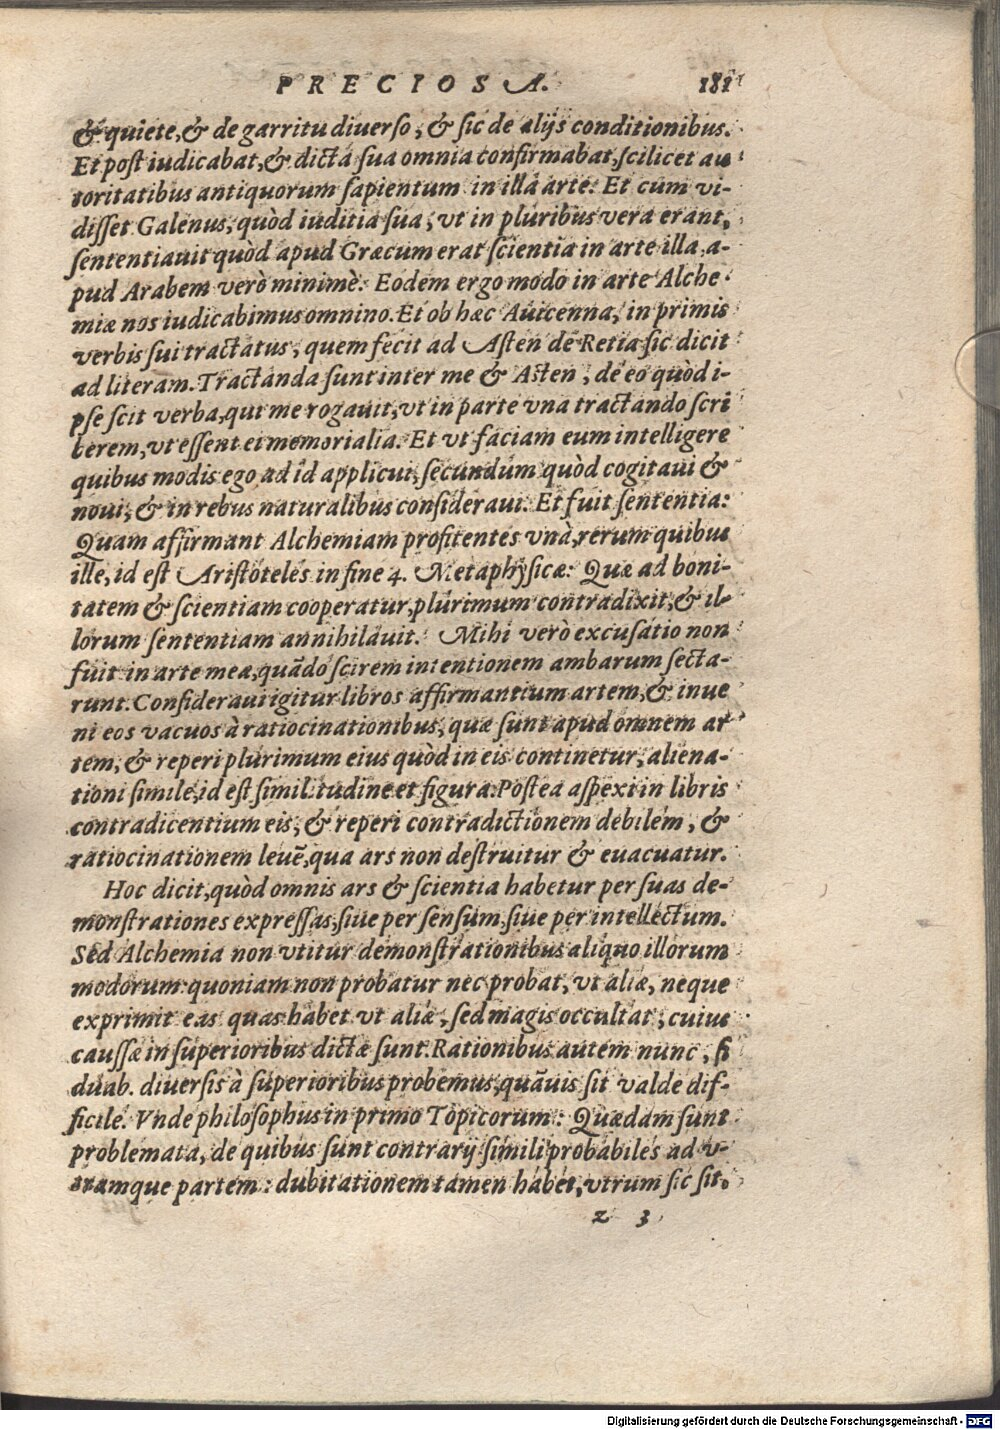 PRECIOSA. 181
& quiete, & de garritu diuerso, & sic de alijs conditionibus.
Et post iudicabat, & dicta sua omnia confirmabat, scilicet au
toritatibus antiquorum sapientum in illa arte: Et cum vi-
disset Galenus, quòd iuditia sua, vt in pluribus vera erant,
sententiauit quòd apud Græcum erat scientia in arte illa, a-
pud Arabem verò minimè. Eodem ergo modo in arte Alche
miæ nos iudicabimus omnino. Et ob hæc Auicenna, in primis
verbis sui tractatus, quem fecit ad Asten de Retia sic dicit
ad literam. Tractanda sunt inter me & Asten, de eo quòd i-
pse scit verba, qui me rogauit, vt in parte vna tractando scri
berem, vt essent ei memorialia. Et vt faciam eum intelligere
quibus modis ego ad id applicui, secundum quòd cogitaui &
noui, & in rebus naturalibus consideraui. Et fuit sententia:
Quam affirmant Alchemiam profitentes vnà, rerum quibus
ille, id est Aristoteles in fine 4. Metaphysicæ: Quæ ad boni-
tatem & scientiam cooperatur, plurimum contradixit, & il-
lorum sententiam annihilauit. Mihi verò excusatio non
fuit in arte mea, quãdo scirem intentionem ambarum secta-
runt. Consideraui igitur libros affirmantium artem, & inue
ni eos vacuos à ratiocinationibus, quæ sunt apud omnem ar
tem, & reperi plurimum eius quòd in eis continetur, aliena-
tioni simile, id est similitudine et figura. Postea aspexi in libris
contradicentium eis, & reperi contradictionem debilem, &
ratiocinationem leuẽ, qua ars non destruitur & euacuatur.
Hoc dicit, quòd omnis ars & scientia habetur per suas de-
monstrationes expressas, siue per sensum, siue per intellectum.
Sed Alchemia non vtitur demonstrationibus aliquo illorum
modorum: quoniam non probatur nec probat, vt aliæ, neque
exprimit eas quas habet vt aliæ, sed magis occultat, cuius
caussæ in superioribus dictæ sunt. Rationibus autem nunc, si
duab. diuersis à superioribus probemus, quãuis sit valde dif-
ficile. Vnde philosophus in primo Topicorum: Quædam sunt
problemata, de quibus sunt contrarij simili probabiles ad v-
tramque partem: dubitationem tamen habet, vtrum sic sit,
z 3
Digitalisierung gefördert durch die Deutsche Forschungsgemeinschaft - DFG